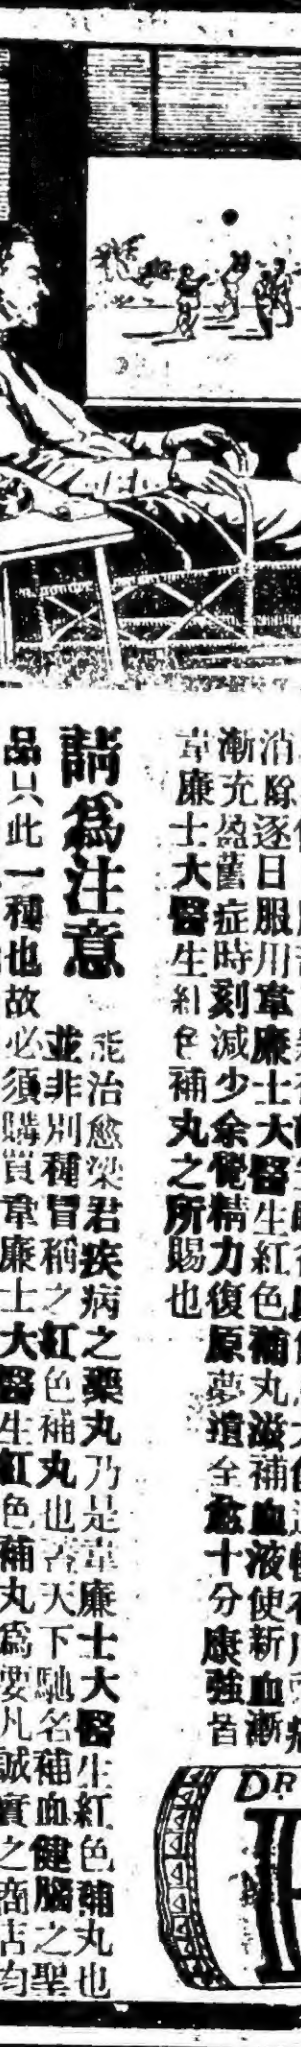 消除逐日服用韋廉士大醫生紅色補丸滋補血液使新血漸
漸充盈舊症時刻減少余覺精力復原夢遺全愈十分康強皆
韋廉士大醫生紅色補丸之所賜也
請為注意
能治愈梁君疾病之藥丸乃是韋廉士大醫生紅色補丸也
並非別種冒稱之紅色補丸也 天下馳名補血健腦之聖
品只此一種也故必須購買韋廉士大醫生紅色補丸為要凡誠實之商店均
DR